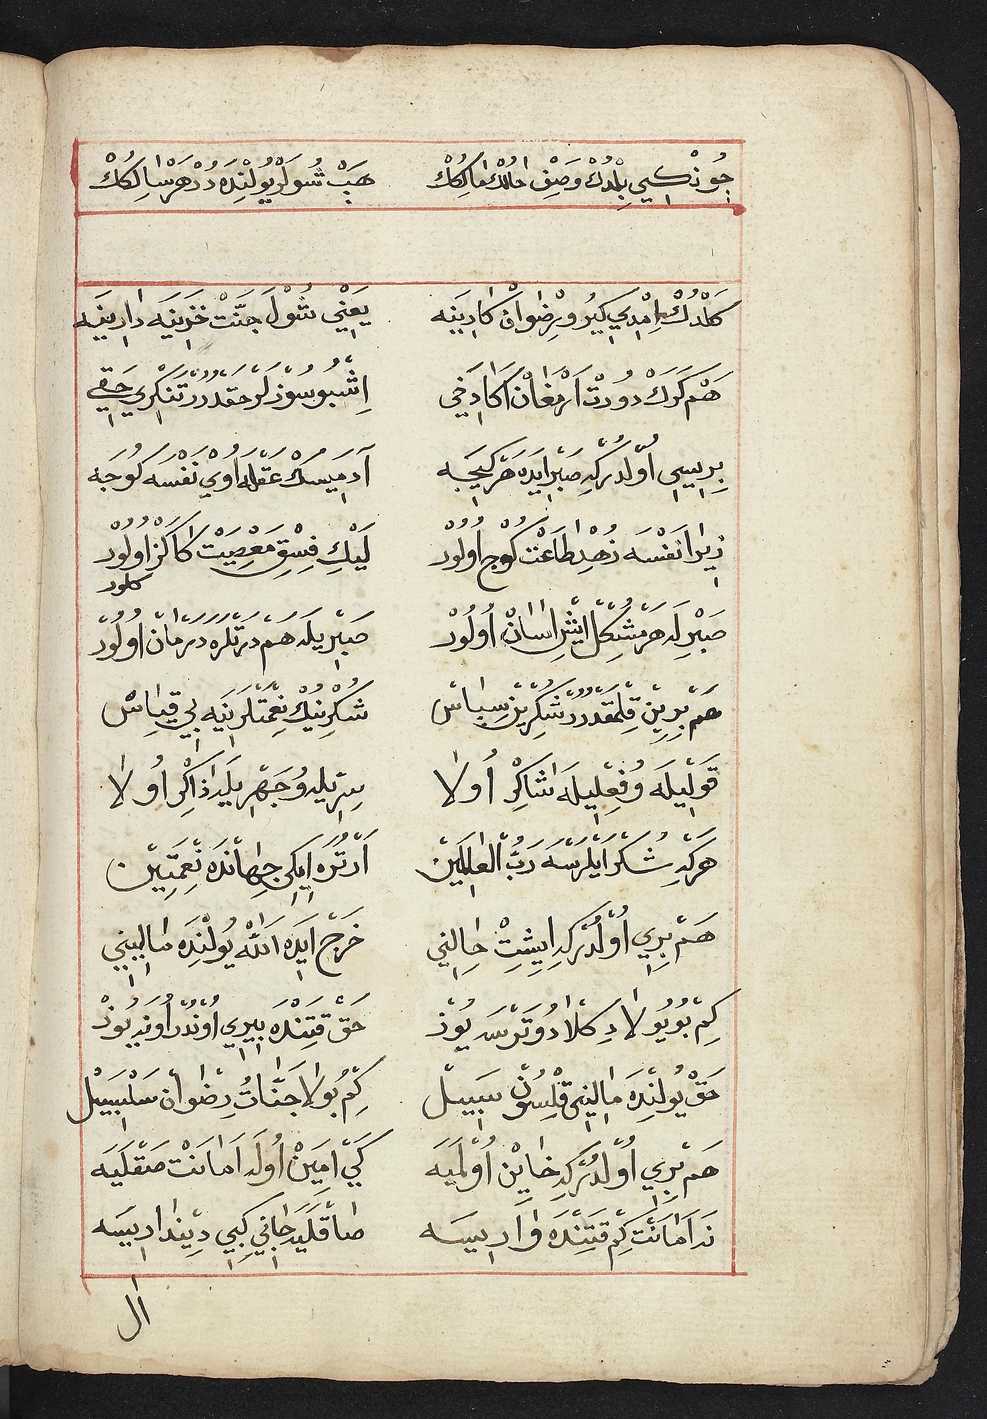 جُونْكِيمْ بِلْدُكْ وَصْفِ حالْكْ مالِكُكْ هَبْ شُولَرْ يُولِنْدَه دُرْ هَرْ سالِكُكْ
كَلْدُكْ اِمْدِي كيرُو رِضْوانْ كَارِينَه يَعْنِي شُولْ جَنَّتْ خَزِينَه دارِينَه
هَمْ كَرَكْ دُورْتْ اَرْمَغانْ اَكَا دَخِي اِشْبُو سُوزْلَرْ حَقْدُرُرْ تَنْكْرِي حَقِي
بِرِيسِي اُولْدُرْكِه صَبْرْ اَيدَه هَرْ كِيجَه آدَمِيسَكْ عَقْلَه اُوْي نَفْسَه كُوجَه
زِيرَا نَفْسَه زُهْدِ طاعَتْ كُوجْ اُولُورْ لَيْكِ فِسْقِ مَعْصِيَتْ اَكَا كَزْ اُولُورْ
كلور
صَبْرِلَه هَرْ مُشْكِلْ اِيشْ اَسانْ اُولُورْ صَبْرِيلَه هَمْ دَرْتْلَرَه دَرْمانْ اُولُورْ
هَمْ بِرِينْ قِلْمَقْدُرُرْ شُكْرِينْ سِپاسْ شُكْرِنُكْ نِعْمَتْلَرِينَه بِي قِياسْ
قَوْلِيلَه وُ فِعْلِيلَه شاكِرْ اُولا سِرِّيلَه وُ جَهْرِيلَه ذاكِرْ اُولا
هَرْكِه شُكْرْ اَيْلَرْسَه رَبُّ الْعالَمِينْ اَرْتُرَه اِيكِي جِهانْدَه نِعْمَتِينْ
هَمْ بِرِي اُولْدُرْكِه اِيشِتْ حالِنِي خَرْجْ ايدَه اَللّٰه يُولِنْدَه مالِينِي
كِمْ بُو يُولا دِكْلا دُوتَرْسَه يُوزْ حَقْ قَتِنْدَه بِيرِي اُونْدُرْ اُونِه يُوزْ
حَقْ يُولِنْدَه مالِينِي قِلْسُونْ سَبِيلْ كِمْ بُولا جَنّاتُ رِضْوانْ سَلْسَبِيلْ
هَمْ بِرِي اُولْدُرْكِه خايِنْ اُولْمَيَه كَيْ اَمِينْ اُولَه اَمانَتْ صَقْلَيَه
نَه اَمانَتْ كِمْ قَتِنْدَه وارِيسَه صاقْلَيَه جانِي كِبِي دِينْدارِيسَه
ال